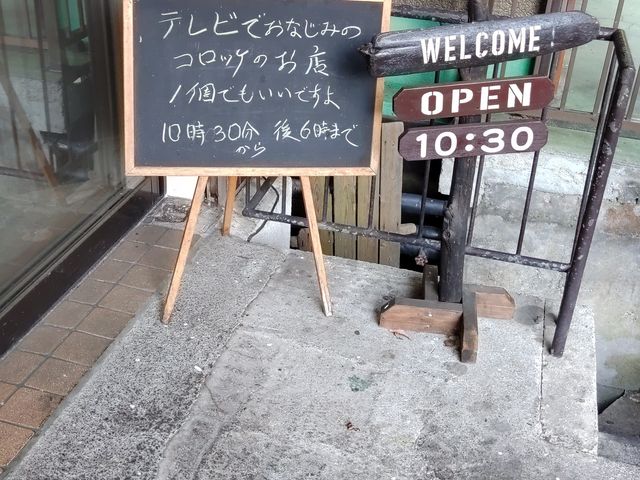 テレビでおなじみの
コロッケのお店
1個でもいいですよ
10時30分から 後6時まで
WELCOME
OPEN
10:30